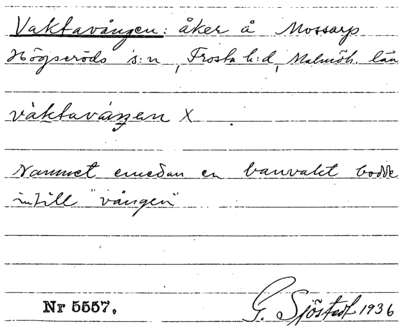 Vaktavången: åker å Mossarp
Högseröds s:n, Frosta h:d, Malmöh. län
vàktavåŋŋen X
Namnet emedan en banvakt bodde
intill "vången"
Nr 5557.
G. Sjöstedt 1936